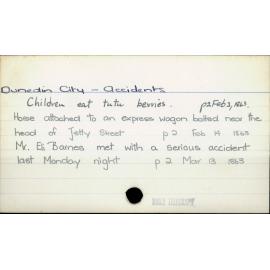 Dunedin City - Accidents
Children eat tutu berries. p2 Feb 3, 1863.
Horse attached to an express wagon bolted near the
head of Jetty Street p 2 Feb 14 1863
Mr. Eli Barnes met with a serious accident
last Monday night p 2 Mar 13 1863